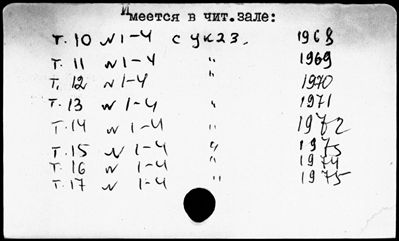 Имеется в чит.зале:
т. 10 N 1-4 с указ. 1968
т. 11 N 1-4 " 1969
т. 12 N 1-4 " 1970
т. 13 N 1-4 " 1971
т. 14 N 1-4 " 1972
т. 15 N 1-4 " 1973
т. 16 N 1-4 " 1974
т. 17 N 1-4 " 1975